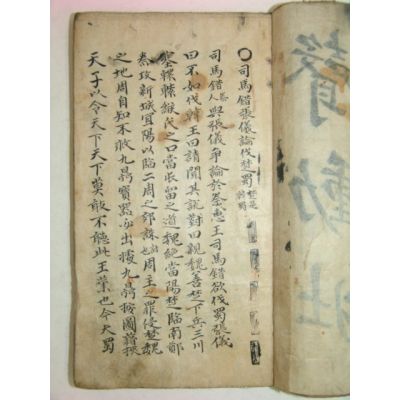 ○司馬錯張儀論伐楚蜀
司馬錯秦人與張儀爭論於秦惠王司馬錯欲伐蜀張儀
曰不如伐韓王曰請聞其說對曰親魏善楚下兵三川
緱氏之口當屯留之道魏絕當陽楚臨南鄭
秦攻新城宜陽以臨二周之郊誅周主之罪侵楚魏
之地周自知不救九鼎寶器必出據九鼎按圖籍挾
天子以令天下天下莫敢不聽此王業也今夫蜀
動